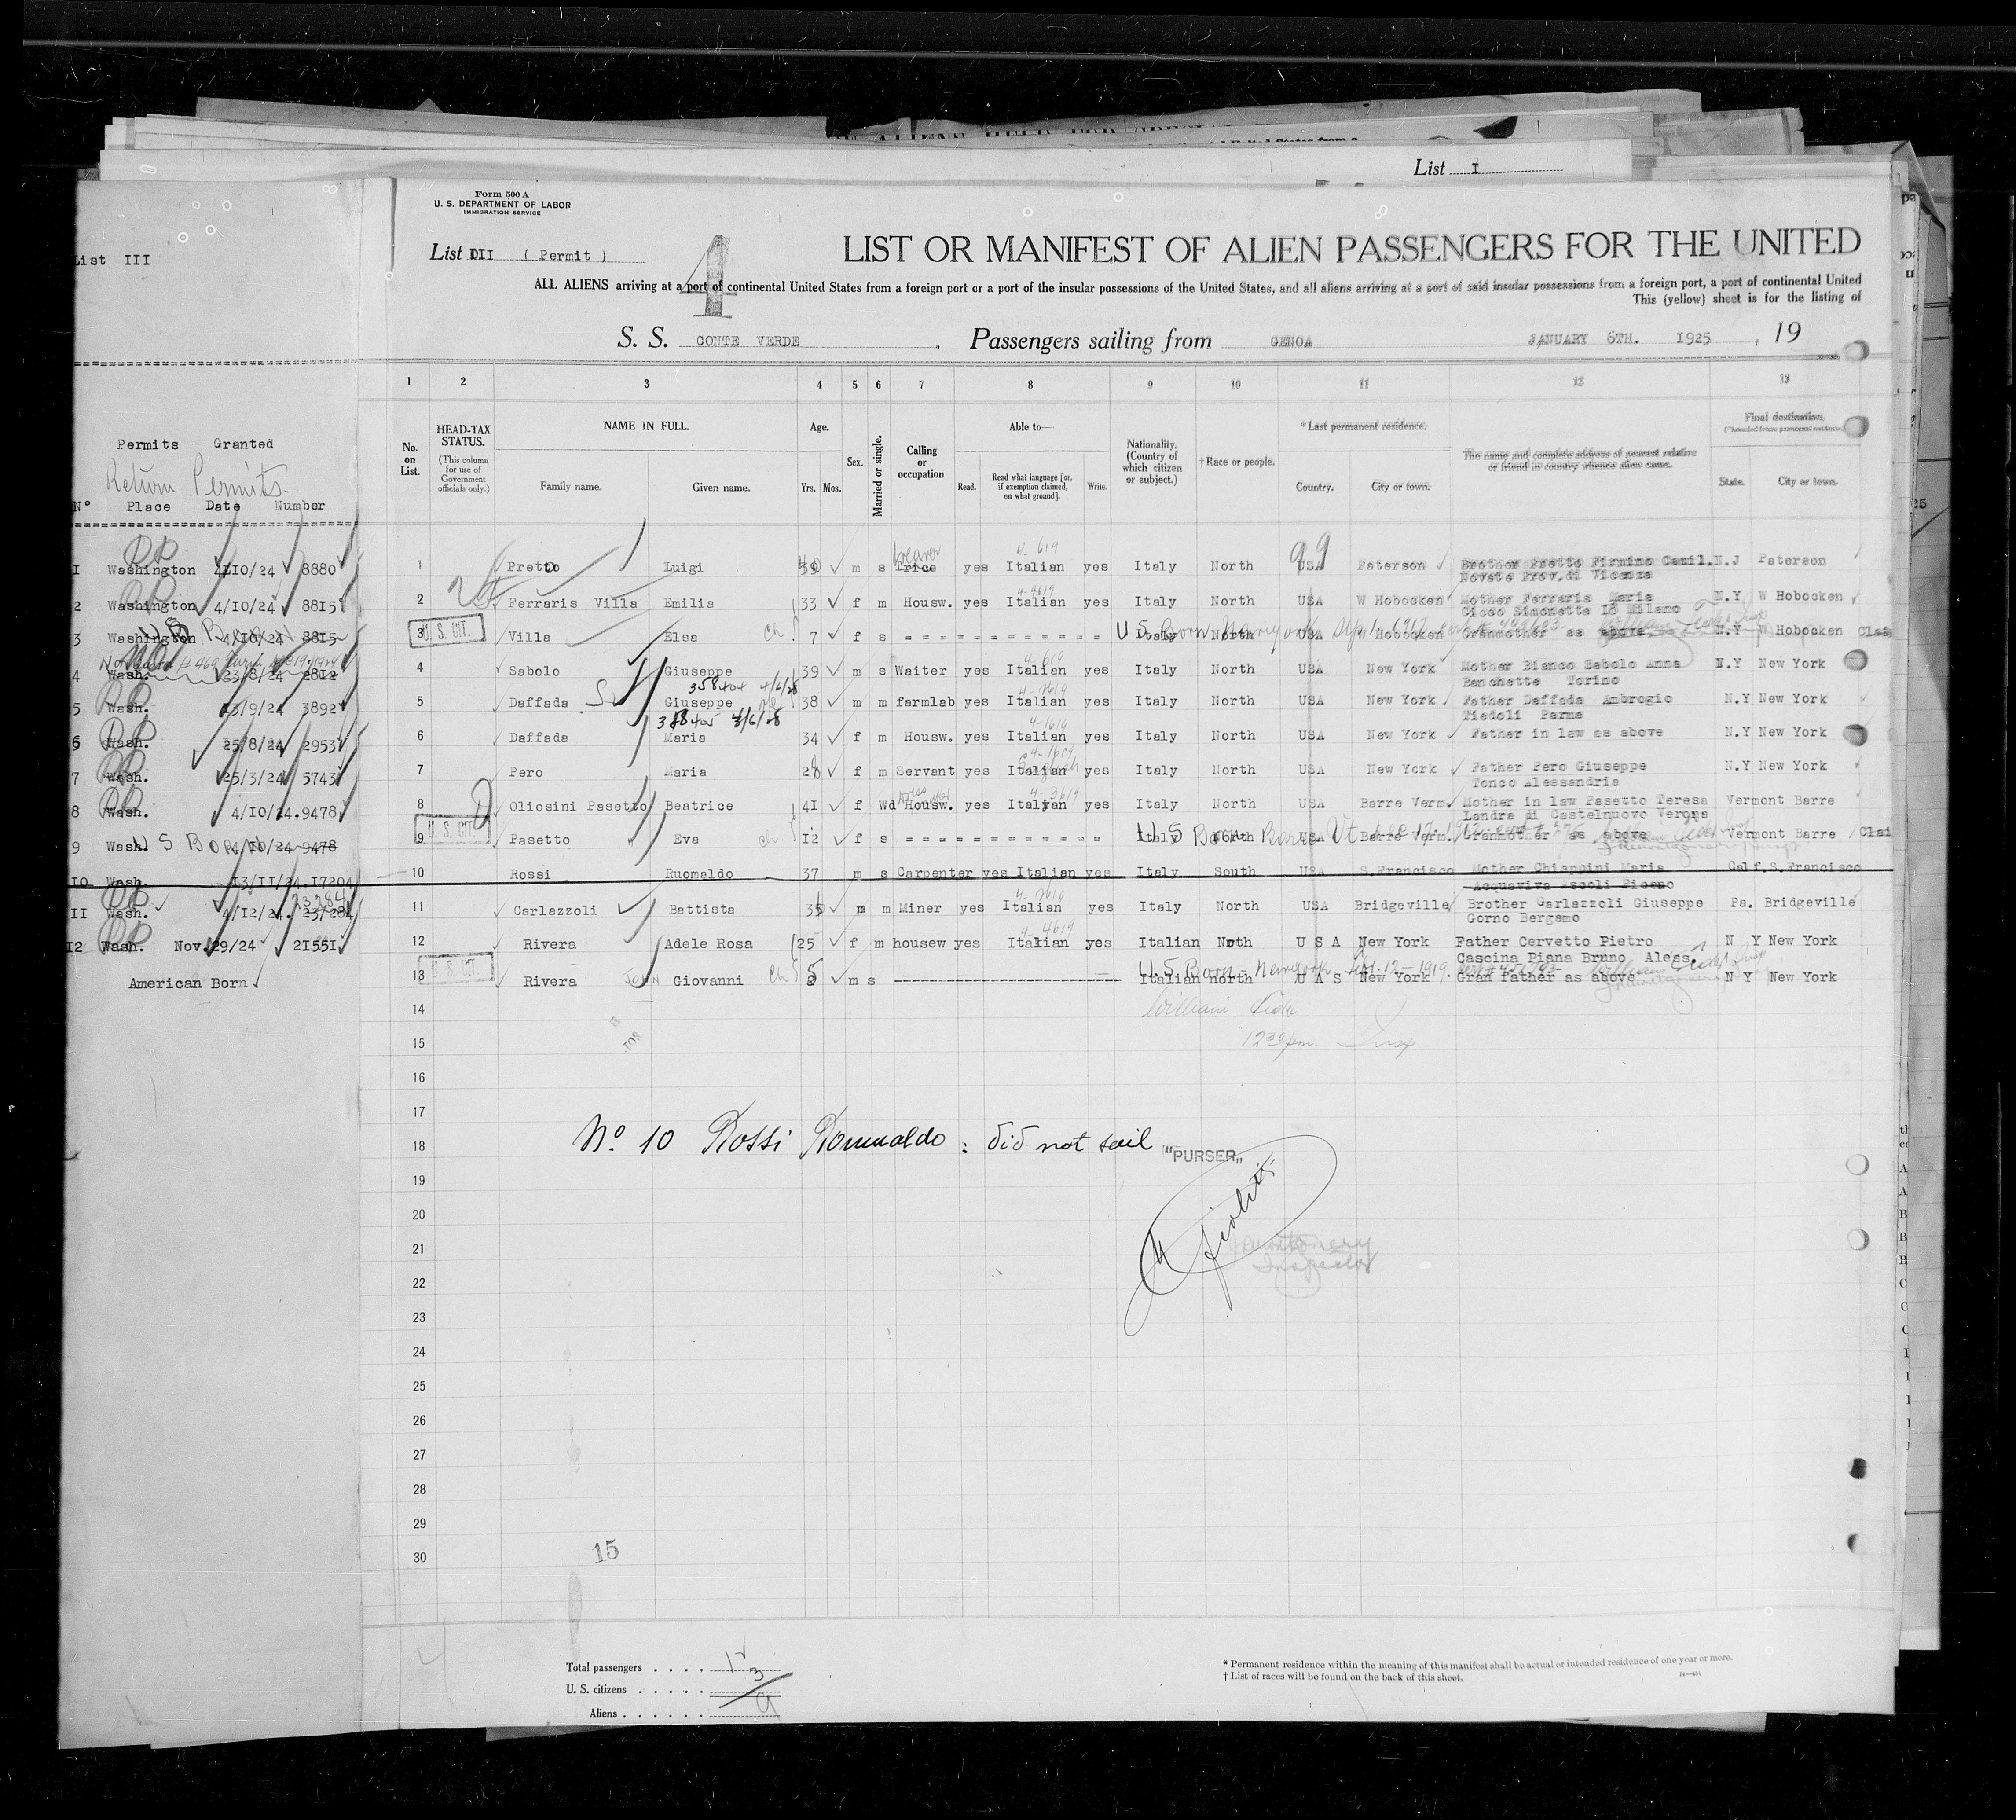 List I
Form 500 A
U. S. DEPARTMENT OF LABOR
IMMIGRATION SERVICE
List DII ( Permit )
4
LIST OR MANIFEST OF ALIEN PASSENGERS FOR THE UNITED
ALL ALIENS arriving at a port of continental United States from a foreign port or a port of the insular possessions of the United States, and all aliens arriving at a port of said insular possessions from a foreign port, a port of continental United
This (yellow) sheet is for the listing of
S. S. CONTE VERDE , Passengers sailing from GENOA JANUARY 6TH. 1925 , 19
List III
Permits Granted
Return Permits
N° Place Date Number
1 Washington 4/10/24 8880
2 Washington 4/10/24 8815
3 Washington 4/10/24 8815
US Born
4 Wash. 23/8/24 2812
5 Wash. 13/9/24 3892
6 Wash. 25/8/24 2953
7 Wash. 25/3/24 5743
8 Wash. 4/10/24.9478
9 Wash. 4/10/24 9478
U S Born
10 Wash. 13/11/24.17204
23284
11 Wash. 4/12/24. 23/284
12 Wash. Nov.29/24 21551
American Born
1 2 3 4 5 6 7 8 9 10 11 12 13
No. on List.
HEAD-TAX STATUS.
(This column for use of Government officials only.)
NAME IN FULL.
Family name. Given name.
Age.
Yrs. Mos.
Sex.
Married or single.
Calling or occupation
Able to—
Read. Read what language [or, if exemption claimed, on what ground]. Write.
Nationality. (Country of which citizen or subject.)
† Race or people.
* Last permanent residence.
Country. City or town.
The name and complete address of nearest relative or friend in country whence alien came.
Final destination.
State. City or town.
99
1 Pretto Luigi m s weaver yes Italian yes Italy North USA Paterson Brother Pretto Firmino Camil. N.J Paterson
Novate Prov.di Vicenza
2 Ferraris Villa Emilia 33 f m Housw. yes Italian yes Italy North USA W Hobocken Mother Ferraris Maria N.Y W Hobocken
Cisco Simonetta 18 Milano
3 U. S. CIT. Villa Elsa ch 7 f s Italy North USA W Hobocken Granmother as above N.Y W Hobocken Clai
U S Born
4 Sabolo Giuseppe 39 m s Waiter yes Italian yes Italy North USA New York Mother Bianco Sabolo Anna N.Y New York
Banchette Torino
358404 4/6/28
5 Daffada Giuseppe 38 m m farmlab yes Italian yes Italy North USA New York Father Daffada Ambrogio N.Y New York
Tiedoli Parma
358405
6 Daffada Maria 34 f m Housw. yes Italian yes Italy North USA New York Father in law as above N.Y New York
7 Pero Maria f m Servant yes Italian yes Italy North USA New York Father Pero Giuseppe N.Y New York
Tonco Alessandria
8 Oliosini Pasetto Beatrice 41 f Wd Housw. yes Italian yes Italy North USA Barre Verm. Mother in law Pasetto Teresa Vermont Barre
Landra di Castelnuovo Verona
9 U. S. CIT. Pasetto Eva ch 12 f s Italy North USA Barre Verm. Granmother as above Vermont Barre Clai
U S Born Barre Vt
10 Rossi Ruomaldo 37 m s Carpenter yes Italian yes Italy South USA S.Francisco Mother Chiappini Maria Calf.S.Francisco
Acquaviva Ascoli Piceno
11 Carlazzoli Battista m m Miner yes Italian yes Italy North USA Bridgeville Brother Carlazzoli Giuseppe Pa. Bridgeville
Gorno Bergamo
12 Rivera Adele Rosa 25 f m housew yes Italian yes Italian Noth U S A New York Father Cervetto Pietro N Y New York
Cascina Piana Bruno Aless.
13 U. S. CIT. Rivera JOHN Giovanni ch m s Italian north U A S New York Gran father as above N Y New York
U.S Born - New York
14
15
16
17
18
19
20
21
22
23
24
25
26
27
28
29
30
William
12 30 pm. Insp
N° 10 Rossi Romualdo : did not sail
"PURSER"
Montgomery
Inspector
15
Total passengers . . . . 12
U. S. citizens . . . . . 3
Aliens . . . . . . 9
* Permanent residence within the meaning of this manifest shall be actual or intended residence of one year or more.
† List of races will be found on the back of this sheet.